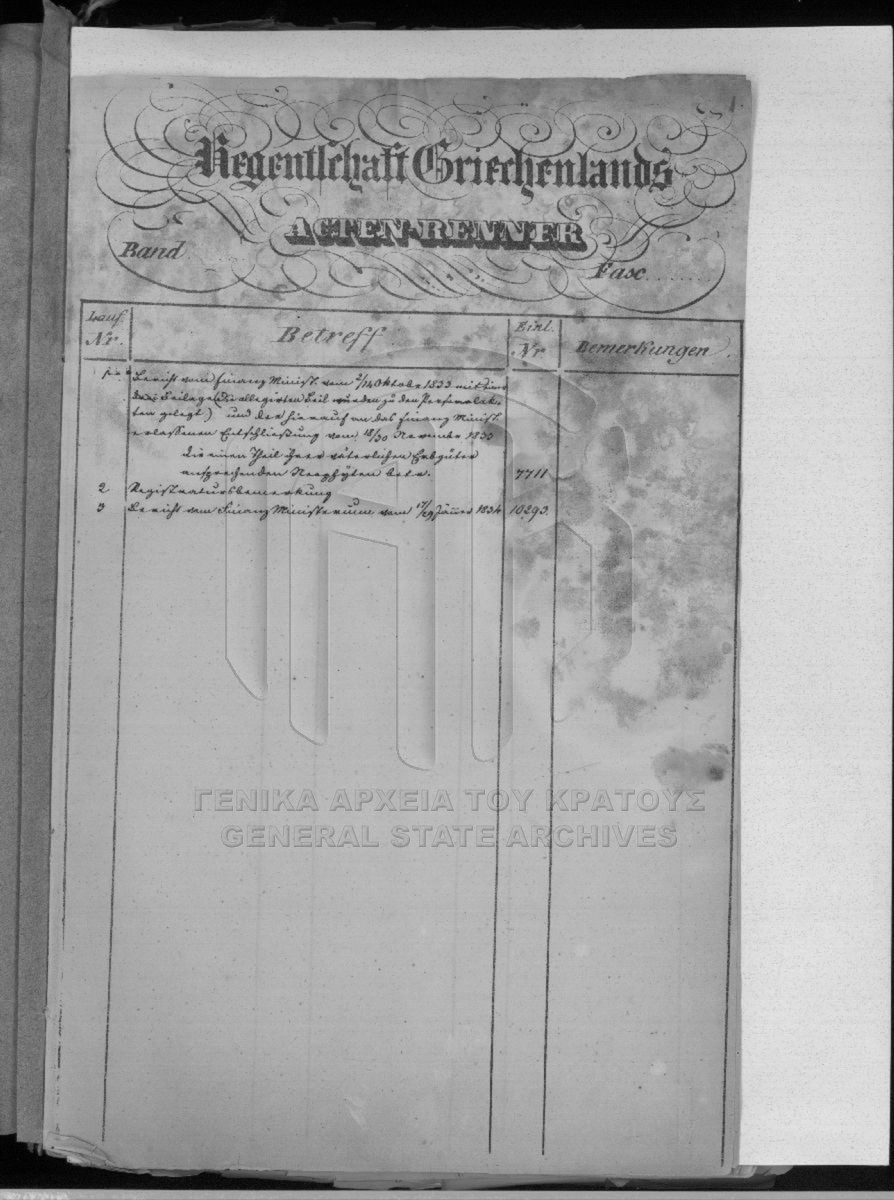 1.
Regentschaft Griechenlands
ACTEN-RENNER
Band
Fasc.
Lauf. Nr.
Betreff
Einl. Nr
Bemerkungen.
1. Bericht vom Finanz Minist. vom 2/14 Oktober 1833 mit
drei Beilagen (die allegirten Beil wurden zu den Personalak-
ten gelegt) und der hierauf an das Finanz Minist.
erlassenen Entschließung vom 18/30 November 1833
die einen Theil ihrer väterlichen Erbgüter
ansprechenden Neophÿten betr. 7711
2 Registratursbemerkung
3 Bericht vom Finanz Ministerium vom 17/29 Jäner 1834 10293.
ΓΕΝΙΚΑ ΑΡΧΕΙΑ ΤΟΥ ΚΡΑΤΟΥΣ
GENERAL STATE ARCHIVES